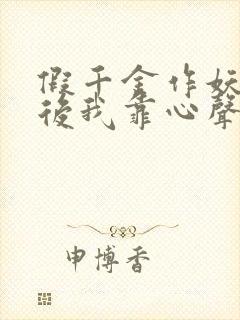 假千金作妖
後我靠心聲
申博香